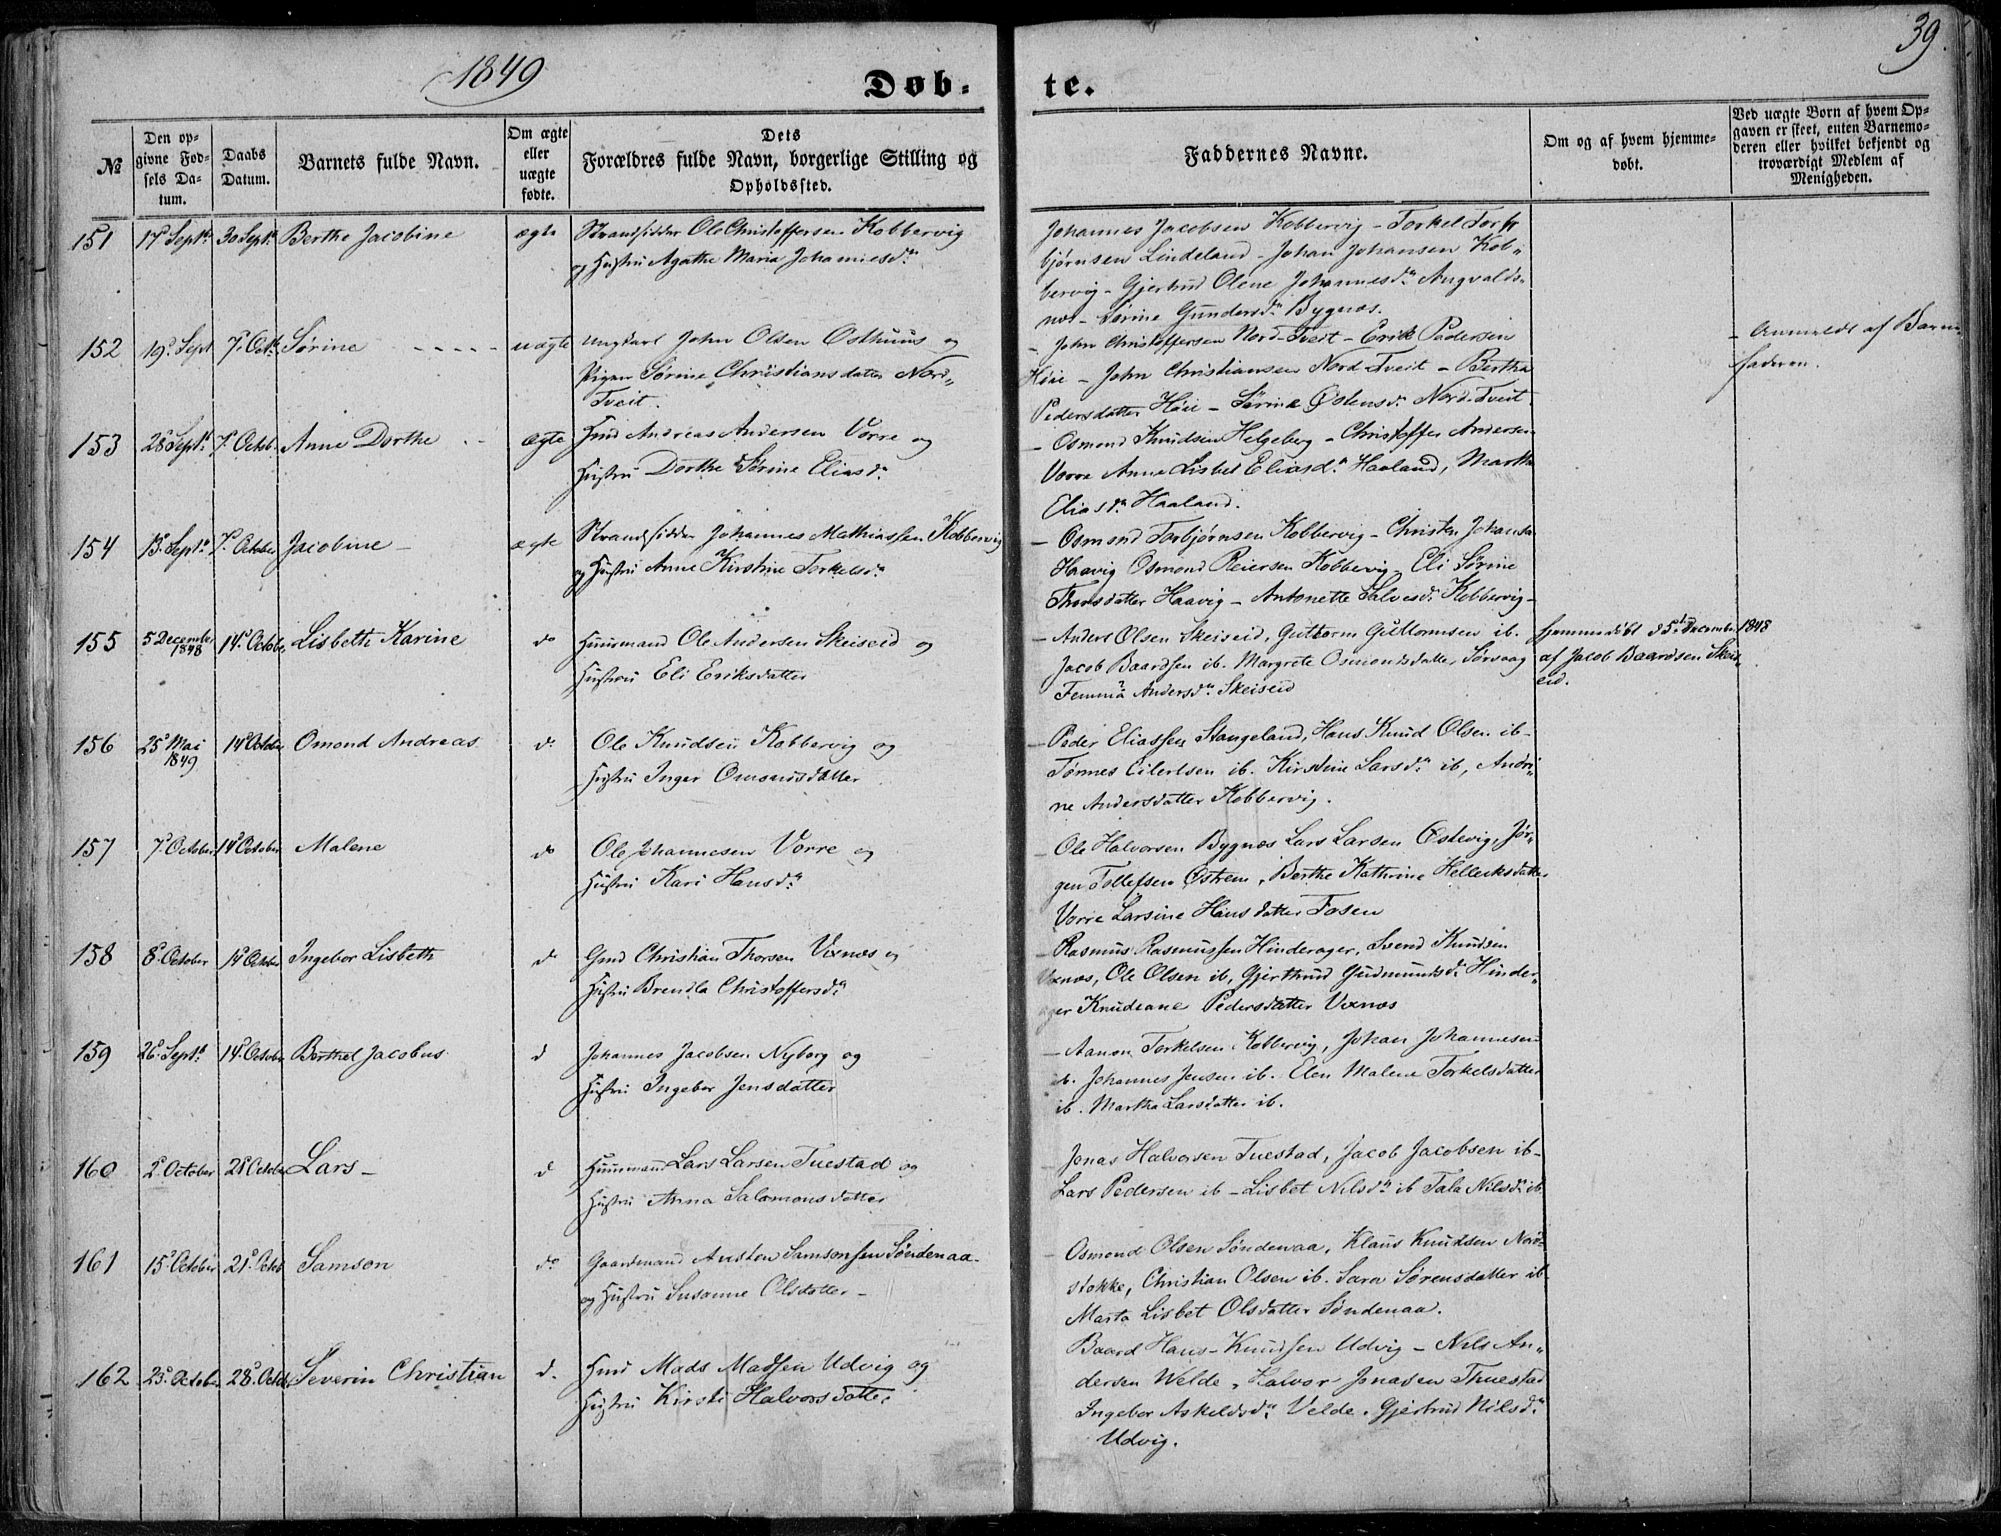 1849
39.
Døb-te.
№
Den op-
givne Fød-
sels Da-
tum.
Daabs
Datum.
Barnets fulde Navn.
Om ægte
eller
uægte
fødte.
Dets
Forældres fulde Navn, borgerlige Stilling og
Opholdssted.
Faddernes Navne.
Om og af hvem hjemme-
døbt.
Ved uægte Børn af hvem Op-
gaven er skeet, enten Barnemo-
deren eller hvilket bekjendt og
troværdigt Medlem af
Menigheden.
151 17 Septr. 30 Septr. Berthe Jacobine ægte Strandsidder Ole Christoffersen Kobbervig
og Hustru Agathe Maria Johannesdr.
Johannes Jacobsen Kobbervig - Torkel Tor
bjørnsen Lindeland - Johan Johansen Kob-
bervig - Gjertrud Olene Johannesdr. Augvalds-
næs - Sørine Gundersdr. Bygnæs.
152 19 Sept 7 Octb. Sørine - - - - uægte Ungkarl John Olsen Osthuus og
Pigen Sørine Christiansdatter Nord-
Tveit.
- John Christoffersen Nord-Tveit - Erik Pedersen
Høie - John Christiansen Nord Tveit - Bertha
Pedersdatter Høie - Sørine Ostensdr. Nord-Tveit
- Anmeldt af Barne
faderen.
153 28 Septr. 7 Octob. Anne Dorthe - - ægte Hmd Andreas Andersen Vorre og
Hustru Dorthe Sørine Eliasdr.
- Osmond Knudsen Helgeberg - Christoffer Andersen
Vorre Anne Lisbet Eliasdr. Haaland, Martha
Eliasdr. Haaland.
154 13 Septr. 7 October Jacobine - ægte Strandsidder Johannes Mathiassen Kobbervig
og Hustru Anne Kirstine Torkelsdr.
- Osmond Torbjørnsen Kobbervig - Christen Johansen
Haavig Osmond Reiersen Kobbervig - Eli Sørine
Thorsdatter Haavig - Antonette Salvesdr. Kobbervig -
155 5 December 1848 14 Octobr. Lisbeth Karine do Huusmand Ole Andersen Skeiseid og
Hustru Eli Eriksdatter
- Anders Olsen Skeiseid, Guttorm Guttormsen ib.
Jacob Baardsen ib. Margrete Osmondsdatter Sørvaag
Femmia Andersdr. Skeiseid
hjemmedøbt d 5te December 1848
af Jacob Baardsen Skeis-
eid.
156 25 Mai 1849 14 October Omond Andreas do Ole Knudsen Kobbervig og
Hustru Inger Omundsdatter
- Peder Eliassen Stangeland, Hans Knud Olsen ib -
Tønnes Eilertsen ib. Kirstine Larsdr. ib, Andri-
ne Andersdatter Kobbervig.
157 7 October 14 October Malene do Ole Johannesen Vorre og
Hustru Kari Hansdr.
- Ole Halvorsen Bygnæs Lars Larsen Østevig, Jør-
gen Tollefsen Østrem, Berthe Kathrine Helleriksdatter
Vorre Larsine Hansdatter Fosen
158 8 October 14 October Ingebor Lisbeth do Gmd Christian Thorsen Vixnæs og
Hustru Brendla Christoffersdr.
- Rasmus Rasmussen Hinderager, Svend Knudsen
Vixnæs, Ole Olsen ib, Gjertrud Gudmundsdr. Hinder-
ager Knudeane Pedersdatter Vixnæs
159 26 Septr. 14 October Berthel Jacobus d Johannes Jacobsen Nyborg og
Hustru Ingebor Jensdatter
- Aanon Torkelsen Kobbervig, Johan Johannesen
ib. Johannes Jensen ib. Elen Malene Torkelsdatter
ib. Martha Larsdatter ib.
160 2 October 21 October Lars - d Huusmand Lars Larsen Tuestad og
Hustru Anna Salomonsdatter
- Jonas Halvorsen Tuestad, Jacob Jacobsen ib -
Lars Pedersen ib - Lisbet Nilsdr. ib Tala Nilsdr. ib.
161 15 October 21 Octob Samson do Gaardmand Austen Samsonsen Søndenaa
og Hustru Susanne Olsdatter -
- Osmond Olsen Søndenaa, Klaus Knudsen Nord-
stokke, Christian Olsen ib. Sara Sørensdatter ib -
Marta Lisbet Olsdatter Søndenaa.
162 23 October 28 Octob. Severin Christian d. Hmd Mads Madsen Udvig og
Hustru Kirsti Halvorsdatter
Baard Hans-Knudsen Udvig - Nils An-
dersen Welde, Halvor Jonasen Thuestad
Ingebor Askeldsdr. Velde. Gjertrud Nilsdr.
Udvig.